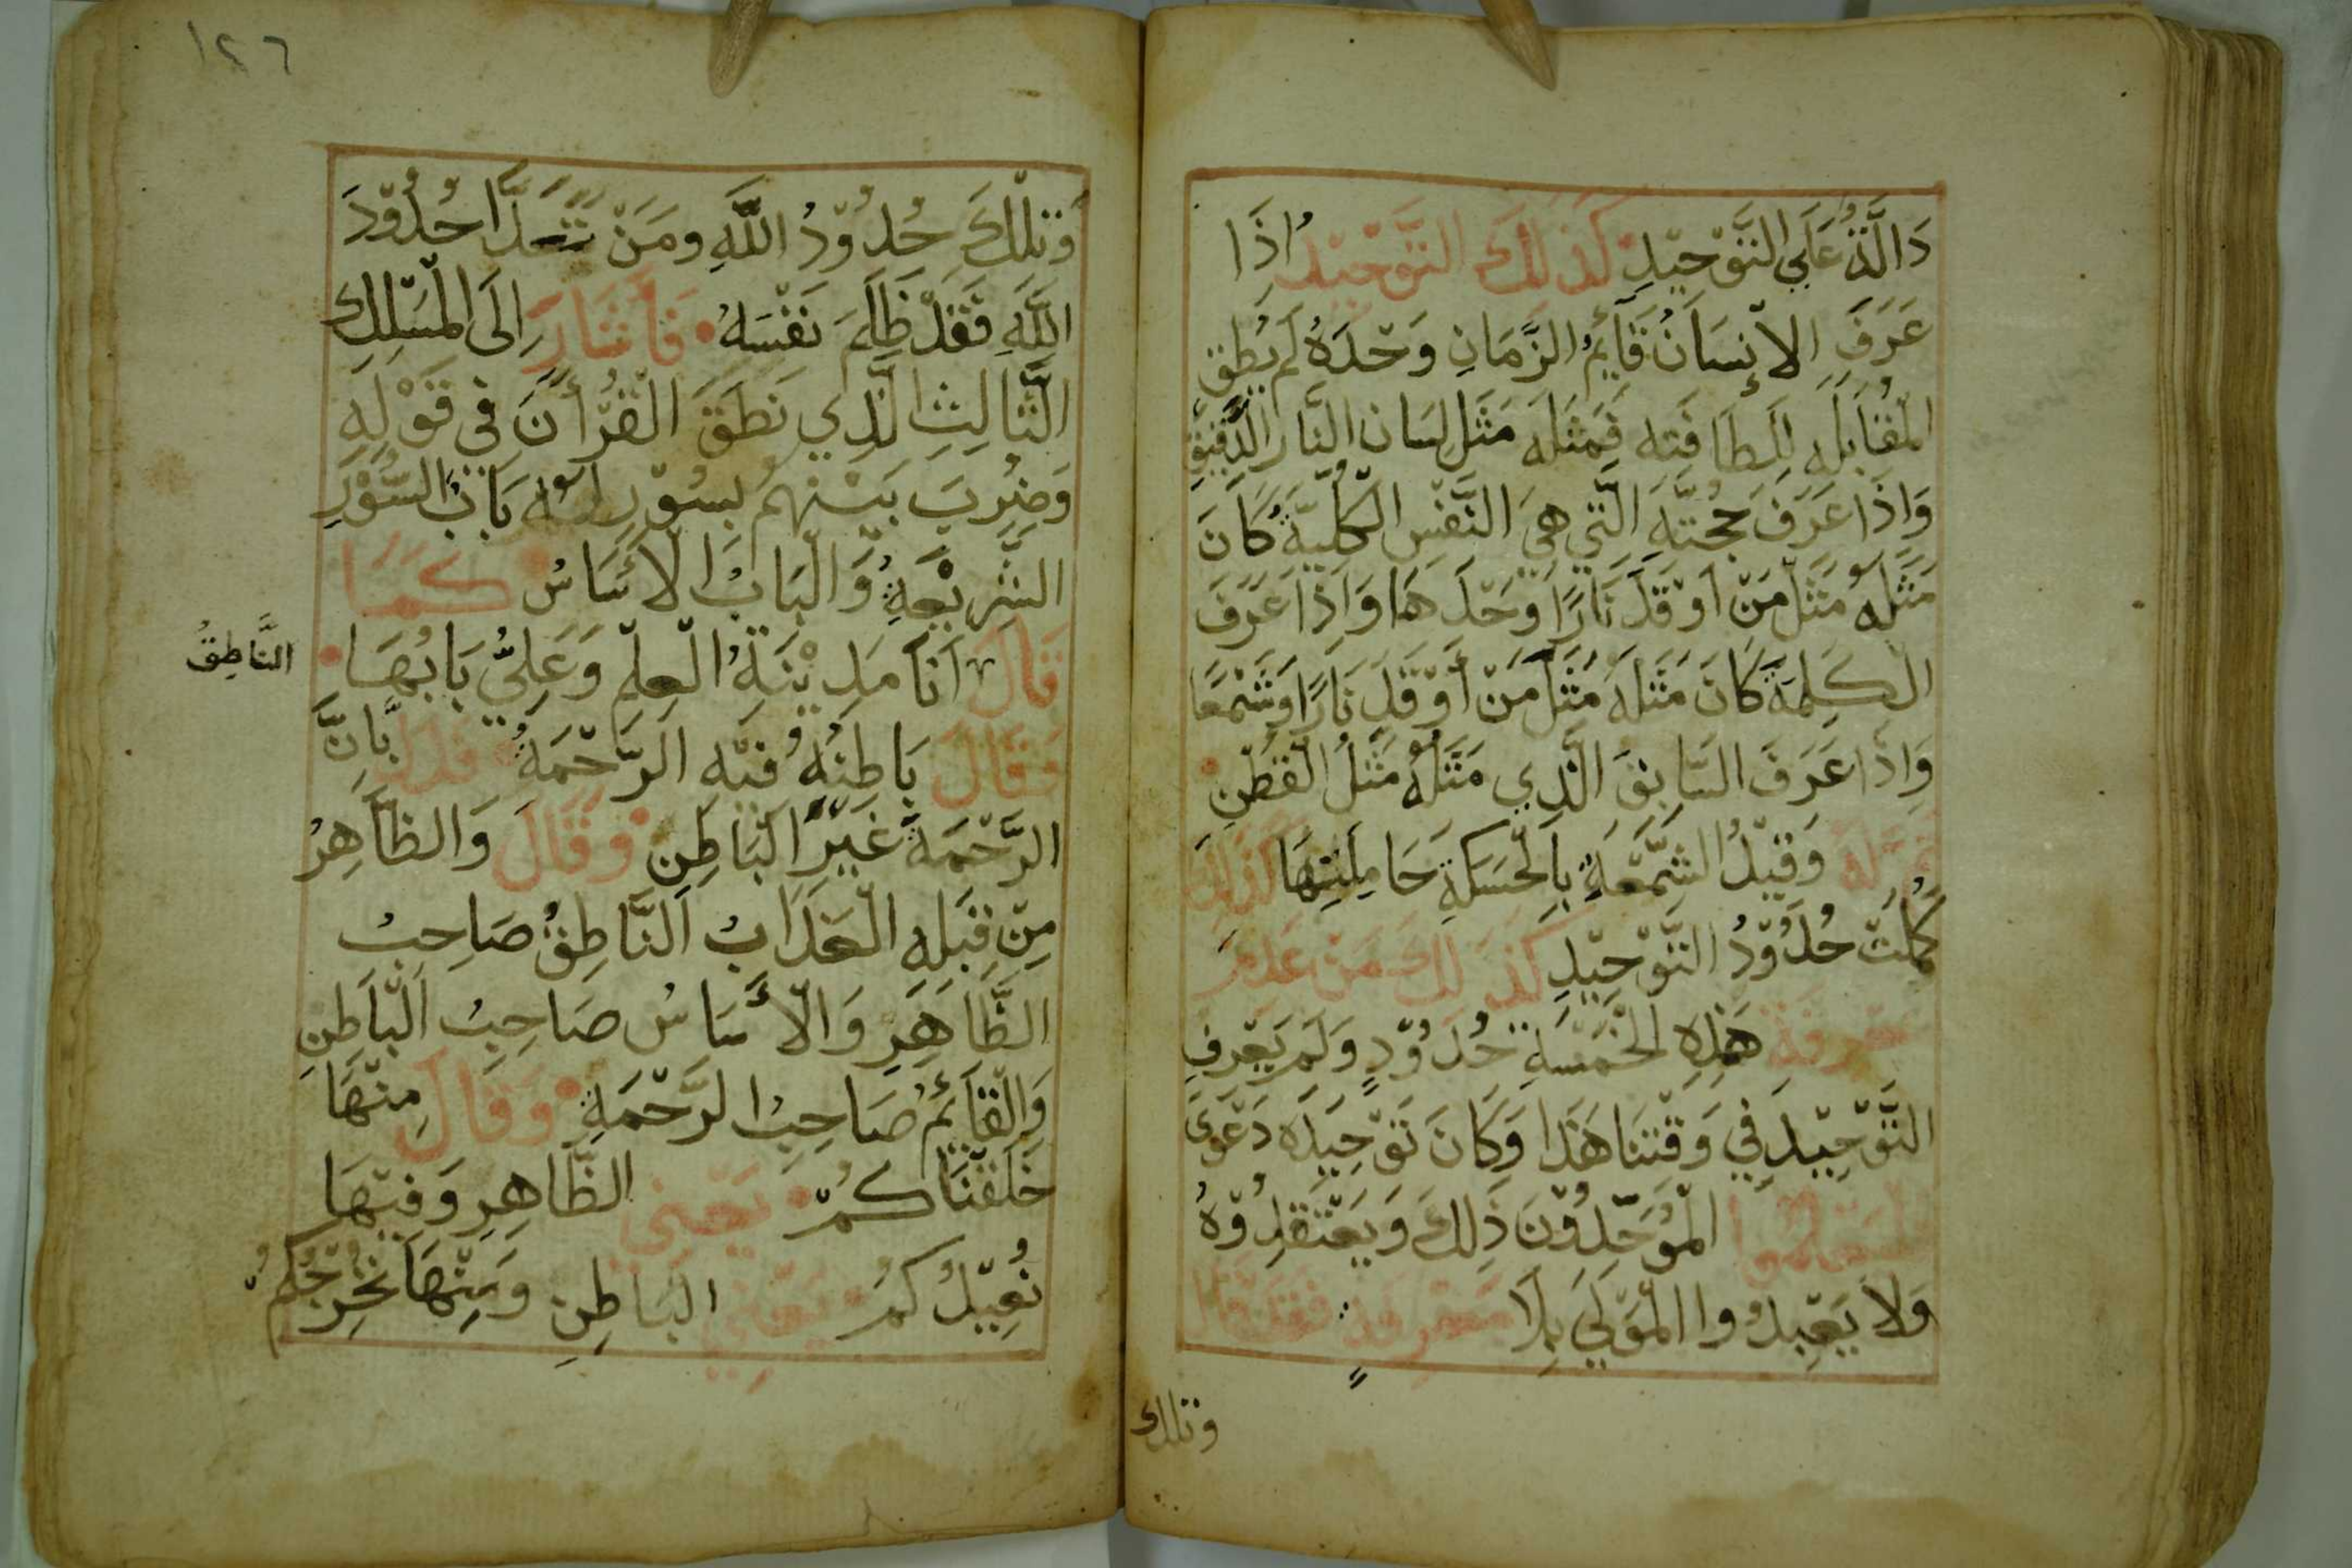 دَالَّةٌ عَلَى التَّوْحِيْدِ كَذٰلِكَ التَّوْحِيْدِ اِذَا
عَرَفَ الاِنْسَانُ قَآئِمُ الزَّمَانِ وَحْدَهُ لَمْ يُطِقِ
الْمُقَابَلَه لِلَطَافَتِه فَمَثَلَه مَثَل لِسَان النَّارِ الدَّقِيْقِ
وَاِذَا عَرَفَ حُجَّتَهِ الَّتِي هِيَ النَّفْسِ الْكُلِّيَّةُ كَانَ
مَثَلَهُ مَثَلُ مَنْ اَوْقَدَ نَارًا وَحْدَهَا وَاِذَا عَرَفَ
الْكَلِمَةَ كَانَ مَثَلَهُ مَثَلَ مَنْ اَوْقَدَ نَارًا وَشَمْعًا
وَاِذَا عَرَفَ السَّابِقَ الَّذِي مَثَلُهُ مَثَلُ الْقُطْنِ
وَقِيْدُ الشَّمْعَةِ بِالْحَسَكَةِ حَامِلَتِهَا كَذٰلِكَ
كَمُلَتْ حُدُوْدُ التَّوْحِيْدِ كَذٰلِكَ مَنْ عَدِمَ
مَعْرِفَةَ هَذِهِ الْخَمْسَةِ حُدُوْدٍ وَلَمْ يَعْرِفِ
التَّوْحِيْدَ فِي وَقْتِنَا هَذَا وَكَانَ تَوْحِيْدَه دَعْوَى
الْمُوَحِّدُوْنَ ذٰلِكَ وَيَعْتَقِدُوْهُ
وَلَا يَعْبِدُوا الْمَوْلَى بِلَا مَعْرِفَه فَقَدْ قَالَ
وتلك
١٢٦
وَتِلْكَ حُدُوْدُ اللّٰهِ وَمَنْ يَتَعَدَّا حُدُوْدَ
اللّٰهِ فَقَدْ ظَلَمَ نَفْسَهُ فَأَشَارَ اِلَى الْمَسْلِكِ
الثَّالِثِ الَّذِي نَطَقَ الْقُرْأَنَ فِي قَوْلِهِ
وَضُرِبَ بَيْنَهُمْ بِسُوْرٍ لَهُ بَابُ السُّوْرِ
الشَّرِيْعَةِ وَالْبَابُ الْأَسَاسُ كَمَا
قَالَ اَنَا مَدِيْنَةُ الْعِلْمِ وَعَلِيُّ بَابُهَا
النَّاطِقُ
وَقَالَ بَاطِنُهُ فِيْهِ الرَّحْمَةُ فَدَلَّ بِاَنَّ
الرَّحْمَةَ غَيْرَ الْبَاطِنِ وَقَالَ وَالظَّاهِرُ
مِنْ قِبَلِهِ الْعَذَابُ النَّاطِقُ صَاحِبُ
الظَّاهِرِ وَالْأَسَاسُ صَاحِبُ الْبَاطِنِ
وَالْقَآئِمُ صَاحِبُ الرَّحْمَةِ وَقَالَ مِنْهَا
خَلَقْنَاكُمْ يَعْنِي الظَّاهِرِ وَفِيْهَا
نُعِيْدُكُمْ يَعْنِي الْبَاطِنِ وَمِنْهَا نُخْرِجُكُمْ